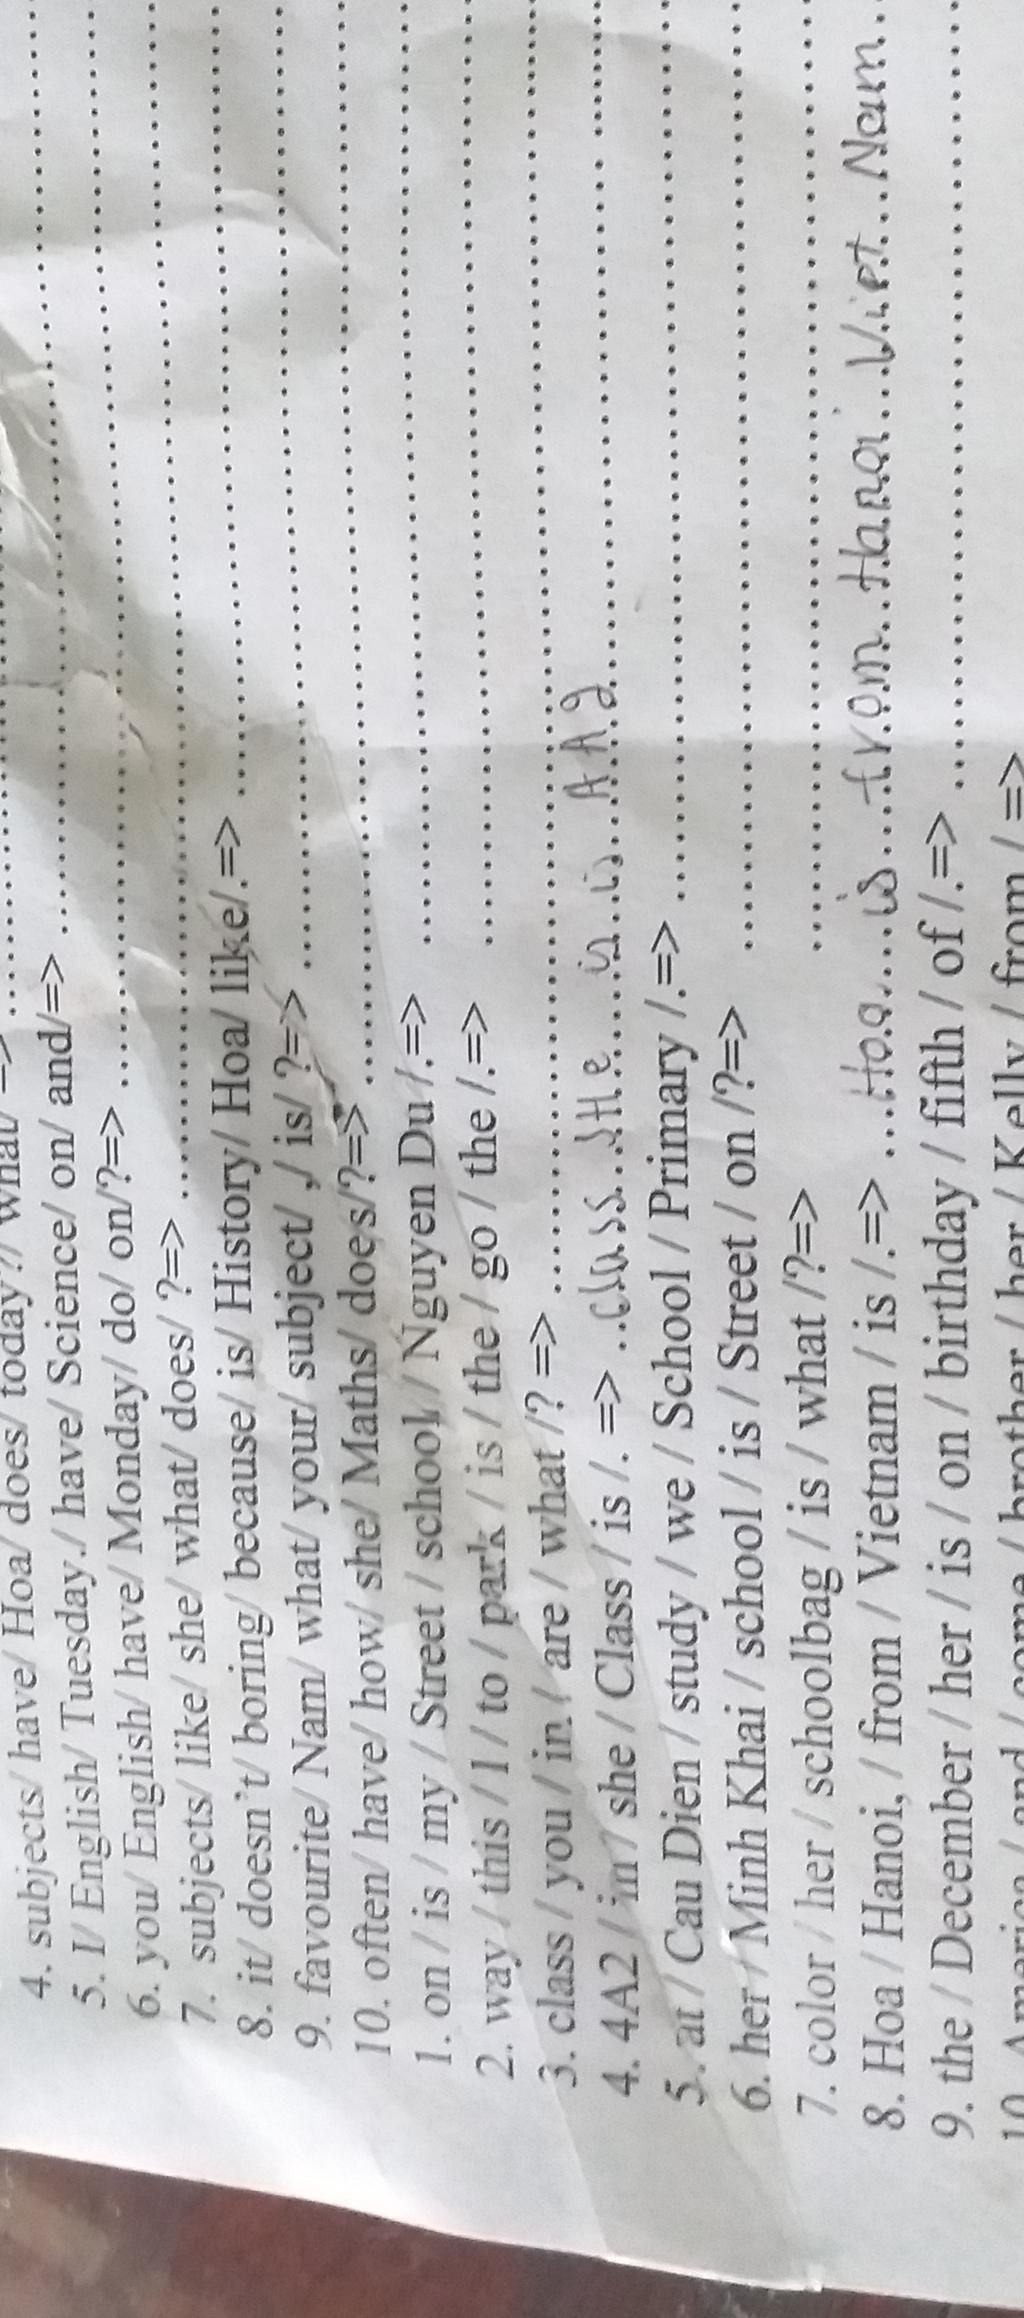 4. subjects/ have/ Hoa/ does/ today?/ what/ =>
5. I/ English/ Tuesday./ have/ Science/ on/ and/=>
6. you/ English/ have/ Monday/ do/ on/?=>
7. subjects/ like/ she/ what/ does/ ?=>
8. it/ doesn't/ boring/ because/ is/ History/ Hoa/ like/.=>
9. favourite/ Nam/ what/ your/ subject/ ,/ is/ ?=>
10. often/ have/ how/ she/ Maths/ does/?=>
1. on / is / my / Street / school / Nguyen Du /.=>
2. way / this / I / to / park / is / the / go / the /.=>
3. class / you / in / are / what /? =>
4. 4A2 / in / she / Class / is /. => class she in is A A2
5. at / Cau Dien / study / we / School / Primary /.=>
6. her / Minh Khai / school / is / Street / on /?=>
7. color / her / schoolbag / is / what /?=>
8. Hoa / Hanoi, / from / Vietnam / is /.=> Hoa is from Hanoi Viet Nam
9. the / December / her / is / on / birthday / fifth / of /.=>
10. America / and / come / brother / her / Kelly / from / =>